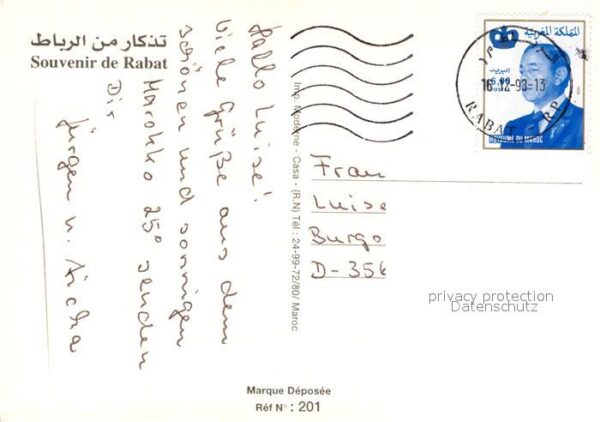 تذكار من الرباط
Souvenir de Rabat
Hallo Luise!
Viele Grüße aus dem
schönen und sonnigen
Marokko 25° senden
Dir
Jürgen u. Aicha
Imp. Moderne - Casa - (R.N) Tél : 24-99-72/80/ Maroc
المملكة المغربية
البريد
6,00
POSTES
ROYAUME DU MAROC
16-12-93-13
RABAT R.P
Frau
Luise
Burgo
D-356
privacy protection
Datenschutz
Marque Déposée
Réf N° : 201